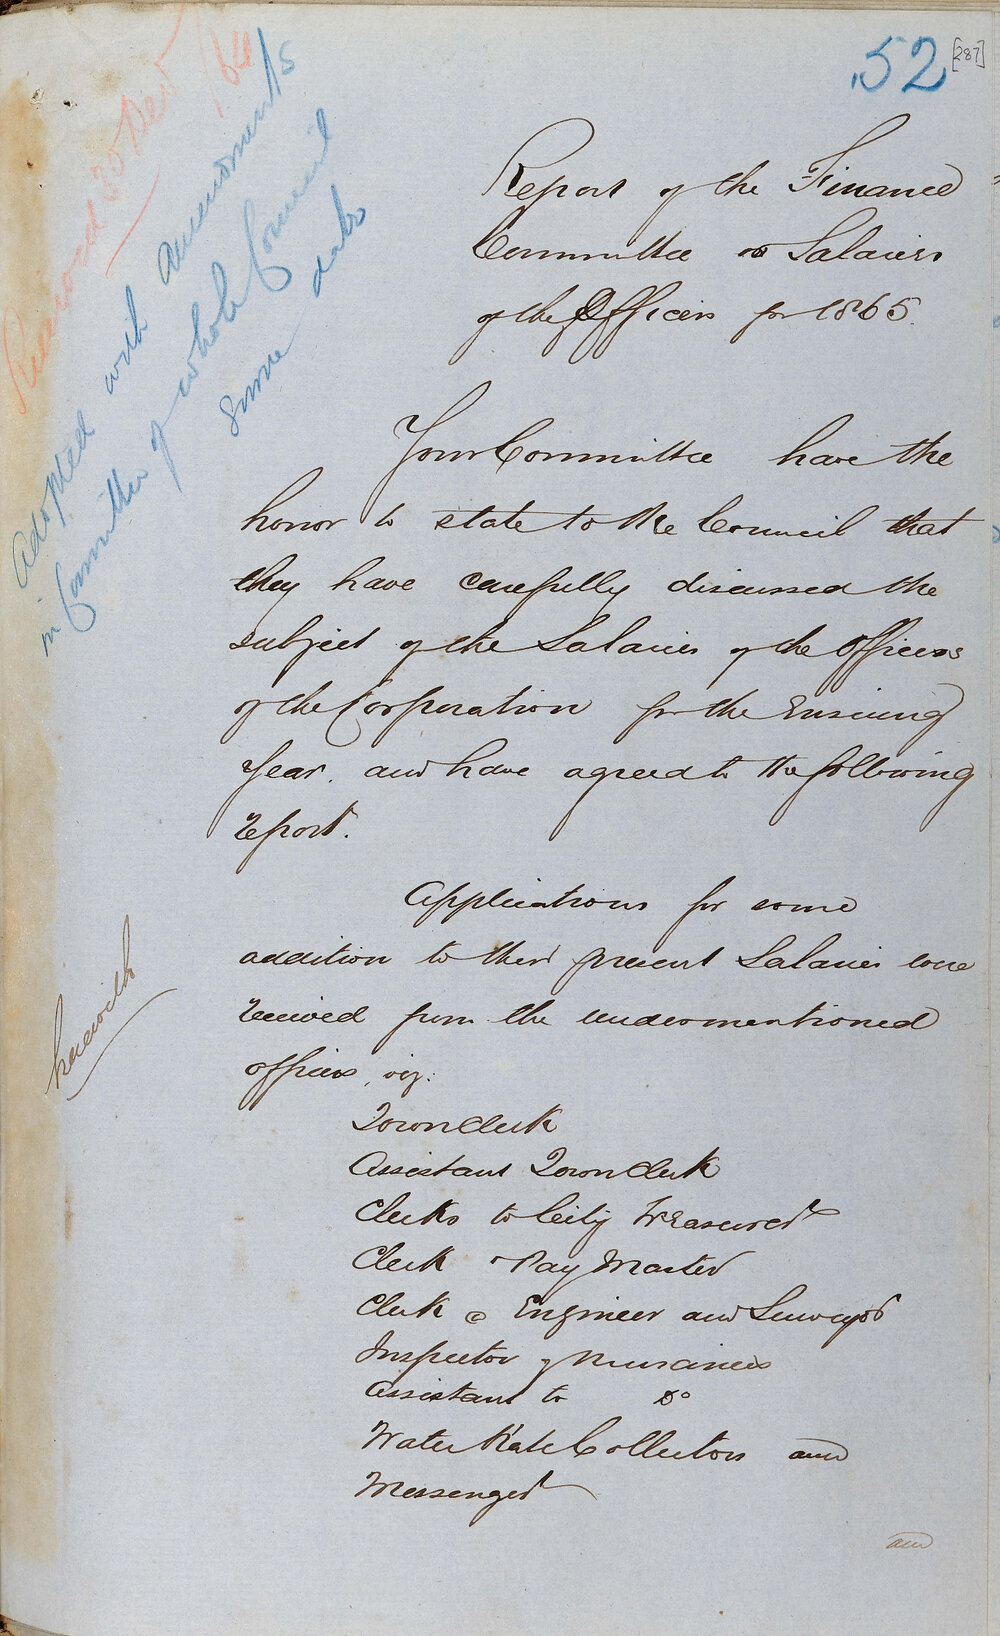 52
[287]
Received 30 Nov /64
Adopted with amendments
in Committee of whole Council
same date
Report of the Finance
Committee on Salaries
of the Officers for 1865.
Your Committee have the
honor to state to the Council that
they have carefully discussed the
subject of the Salaries of the Officers
of the Corporation for the Ensuing
Year. and have agreed to the following
report.
Applications for some
addition to their present Salaries were
received from the undermentioned
officers, viz:
herewith
Town Clerk
Assistant Town Clerk
Clerks to City Treasurer
Clerk & Pay Master
Clerk to Engineer and Surveyor
Inspector of Nuisances
Assistant to Do
Water Rate Collectors and
Messenger
and